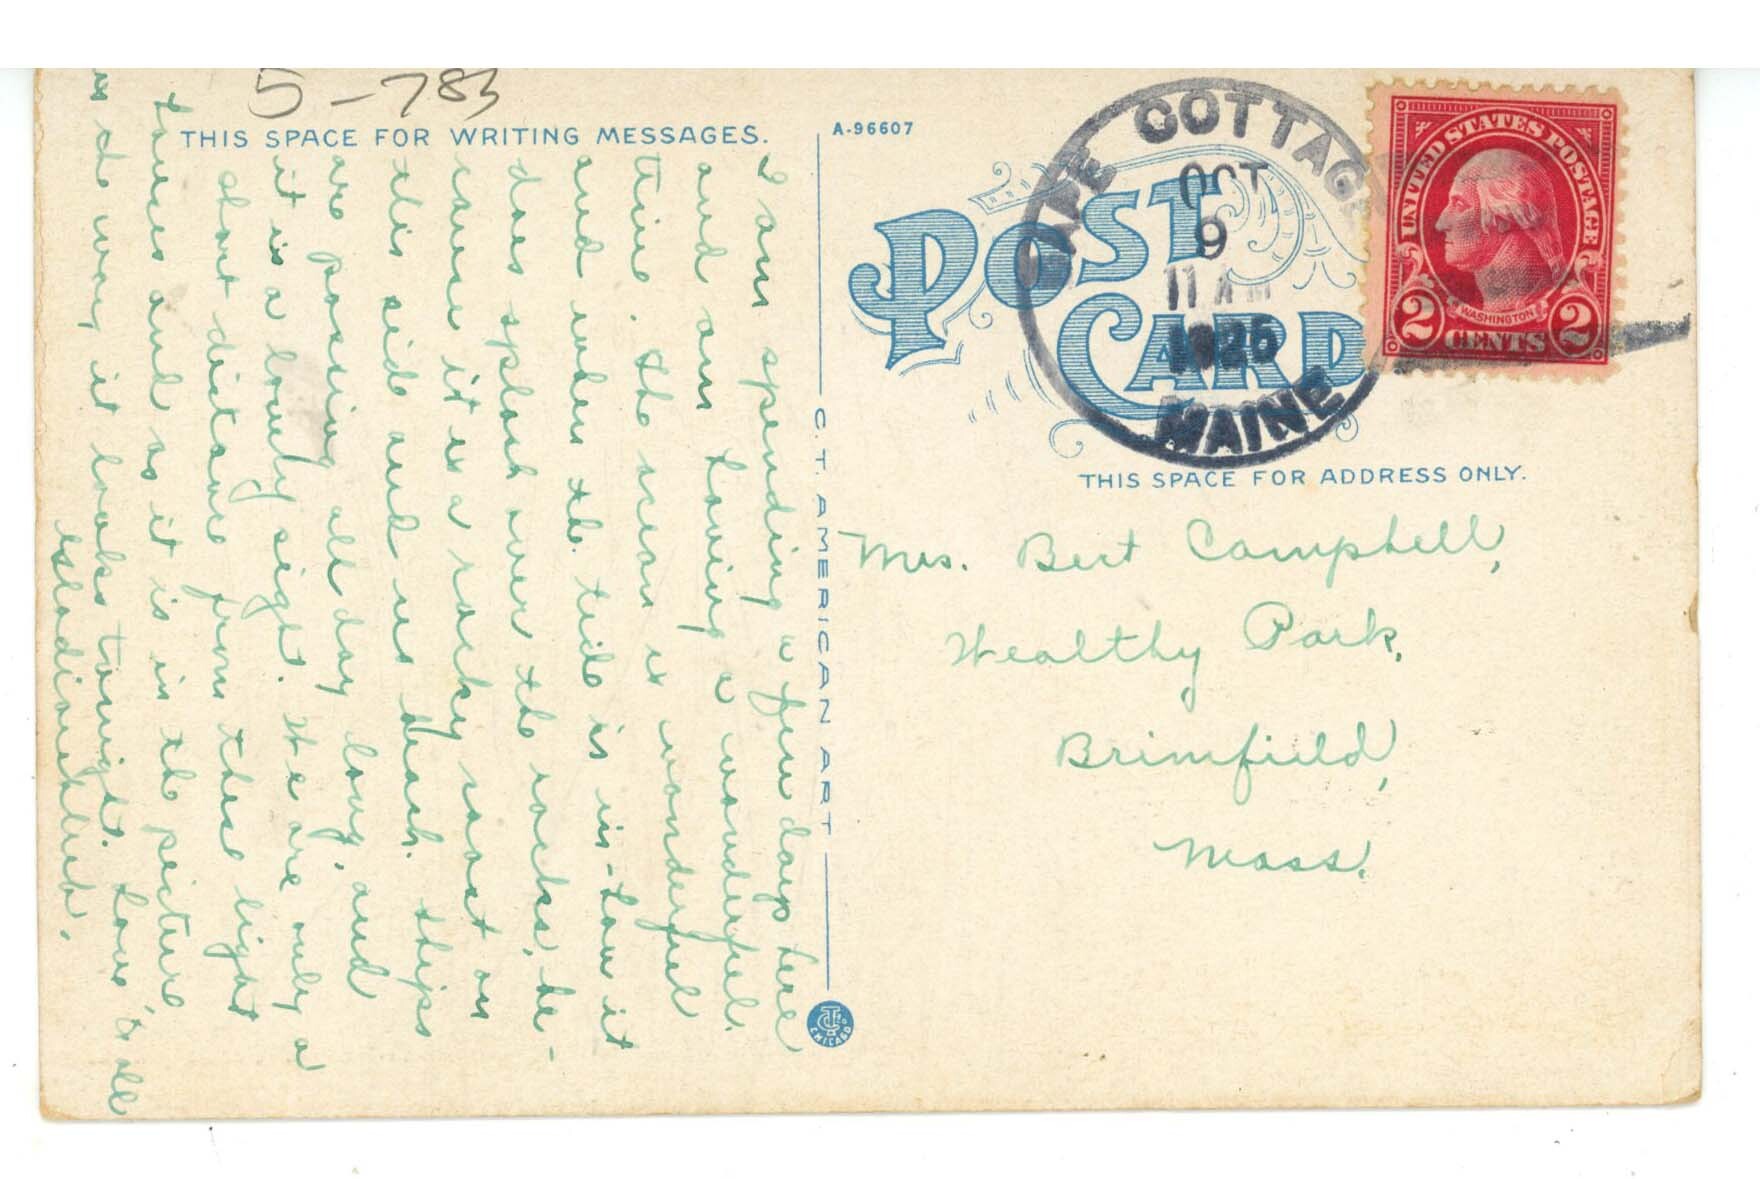 5-783
THIS SPACE FOR WRITING MESSAGES.
I am spending a few days here
and am having a wonderful
time. The ocean is wonderful
and when the tide is in-how it
does splash over the rocks, be-
cause it is a rocky coast on
this side and no beach. Ships
are passing all day long, and
it is a lovely sight. We are only a
short distance from this light
house and as it is in the picture
is the way it looks tonight. Love to all
A-96607
C.T. AMERICAN ART
CHICAGO
POST
CARD
CAPE COTTAGE
OCT
9
11 AM
1925
MAINE
UNITED STATES POSTAGE
WASHINGTON
2 CENTS 2
THIS SPACE FOR ADDRESS ONLY.
Mrs. Bert Campbell,
Wealthy Park,
Brimfield,
Mass.